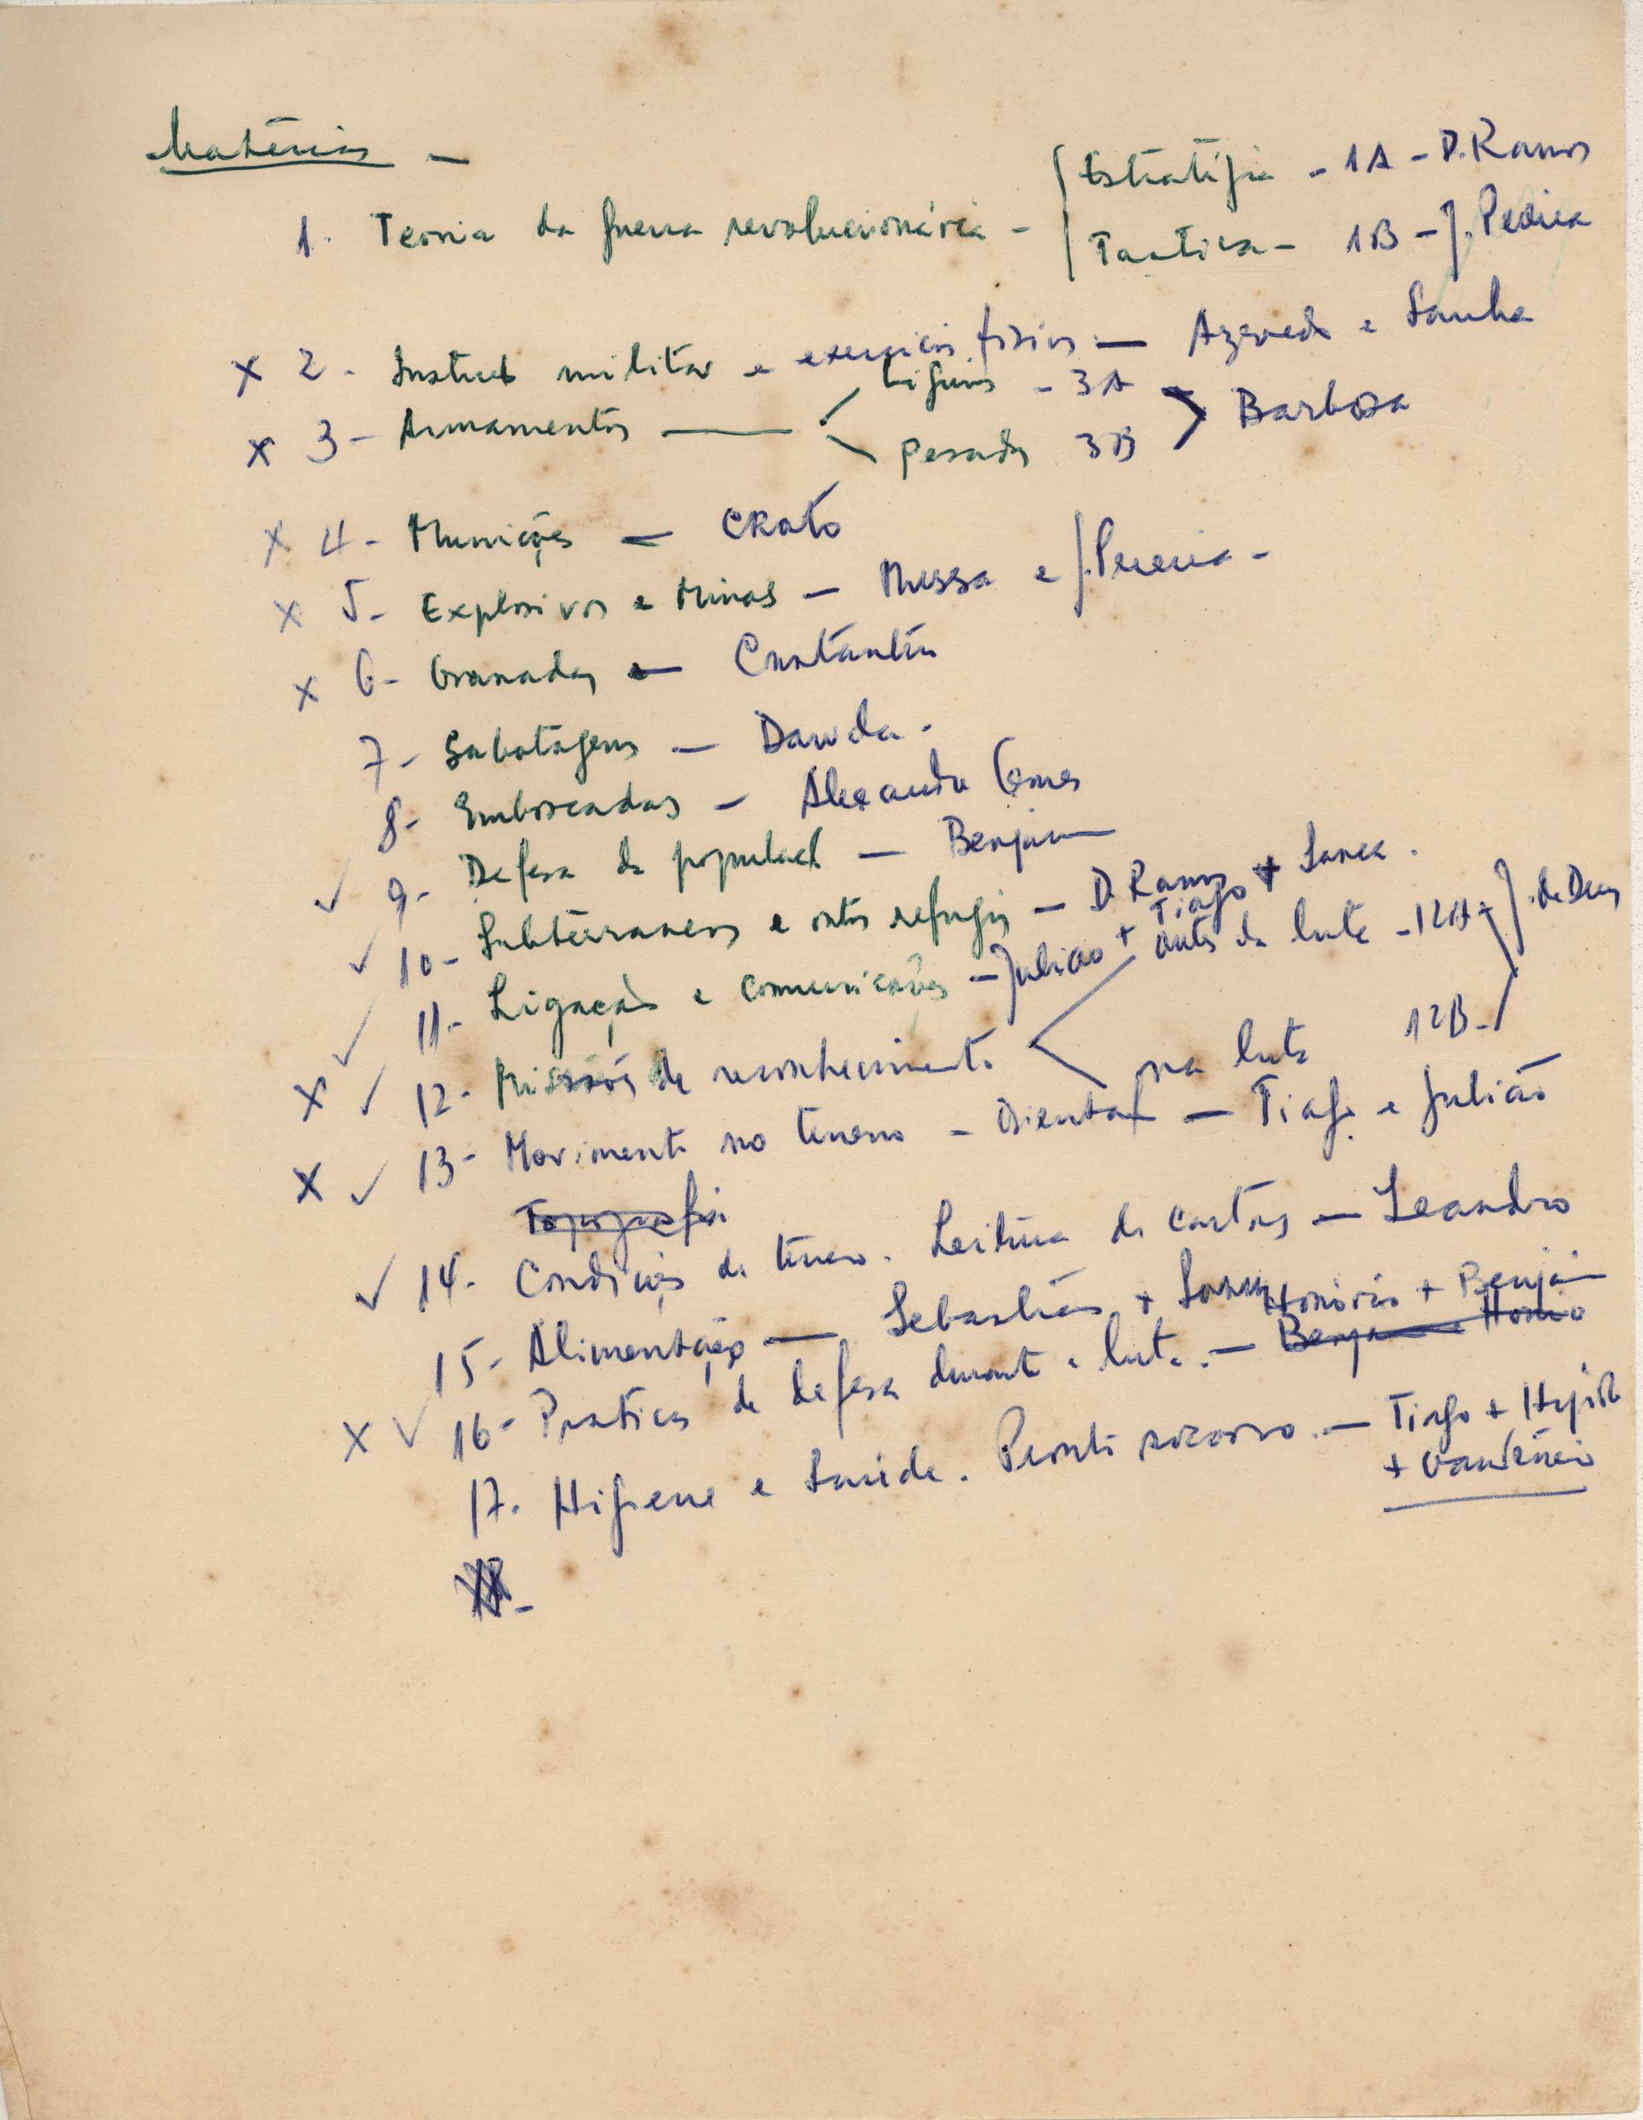 Matérias -
1. Teoria da guerra revolucionária - { Estratégia - 1A - D. Ramos
Tactica - 1B - J. Pereira
x 2 - Instrução militar e exercícios físicos - Azevedo e Sanha
x 3 - Armamentos — ligeiros - 3A
pesados 3B > Barbosa
x 4 - Munições - CRATO
x 5 - Explosivos e Minas - Mussa e J. Pereira -
x 6 - Granadas - Constantin
7 - Sabotagens - Dauda -
8 - Emboscadas - Alexandre Gomes
✓ 9 - Defesa da população - Benjamin
✓ 10 - Subterraneos e outros refugios - D. Ramos + Sanca.
✓ 11 - Ligação e comunicações - Julião + Tiago
x ✓ 12 - Missões de reconhecimento < antes da luta - 12A - J. de Deus
na luta 12B -
x ✓ 13 - Movimento no terreno - Orientação - Tiago e Julião
Topografia
✓ 14 - Condições do terreno. Leitura de cartas - Leandro
15 - Alimentação - Sebastião +
x ✓ 16 - Praticas de defesa durante a luta. - Benjamin e Honório Honório + Benjamin
17. Higiene e Saúde. Pronto socorro. - Tiago +
+